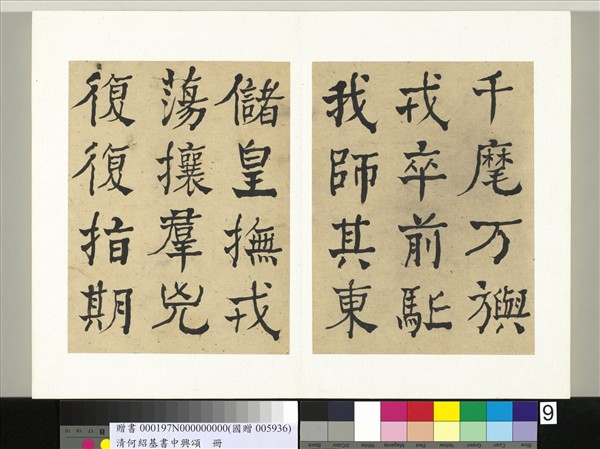 千麾万旟
戎卒前駈
我師其東
儲皇撫戎
蕩攘羣兇
復復指期
贈書 000197N000000000(國贈 005936)
清何紹基書中興頌　冊
9